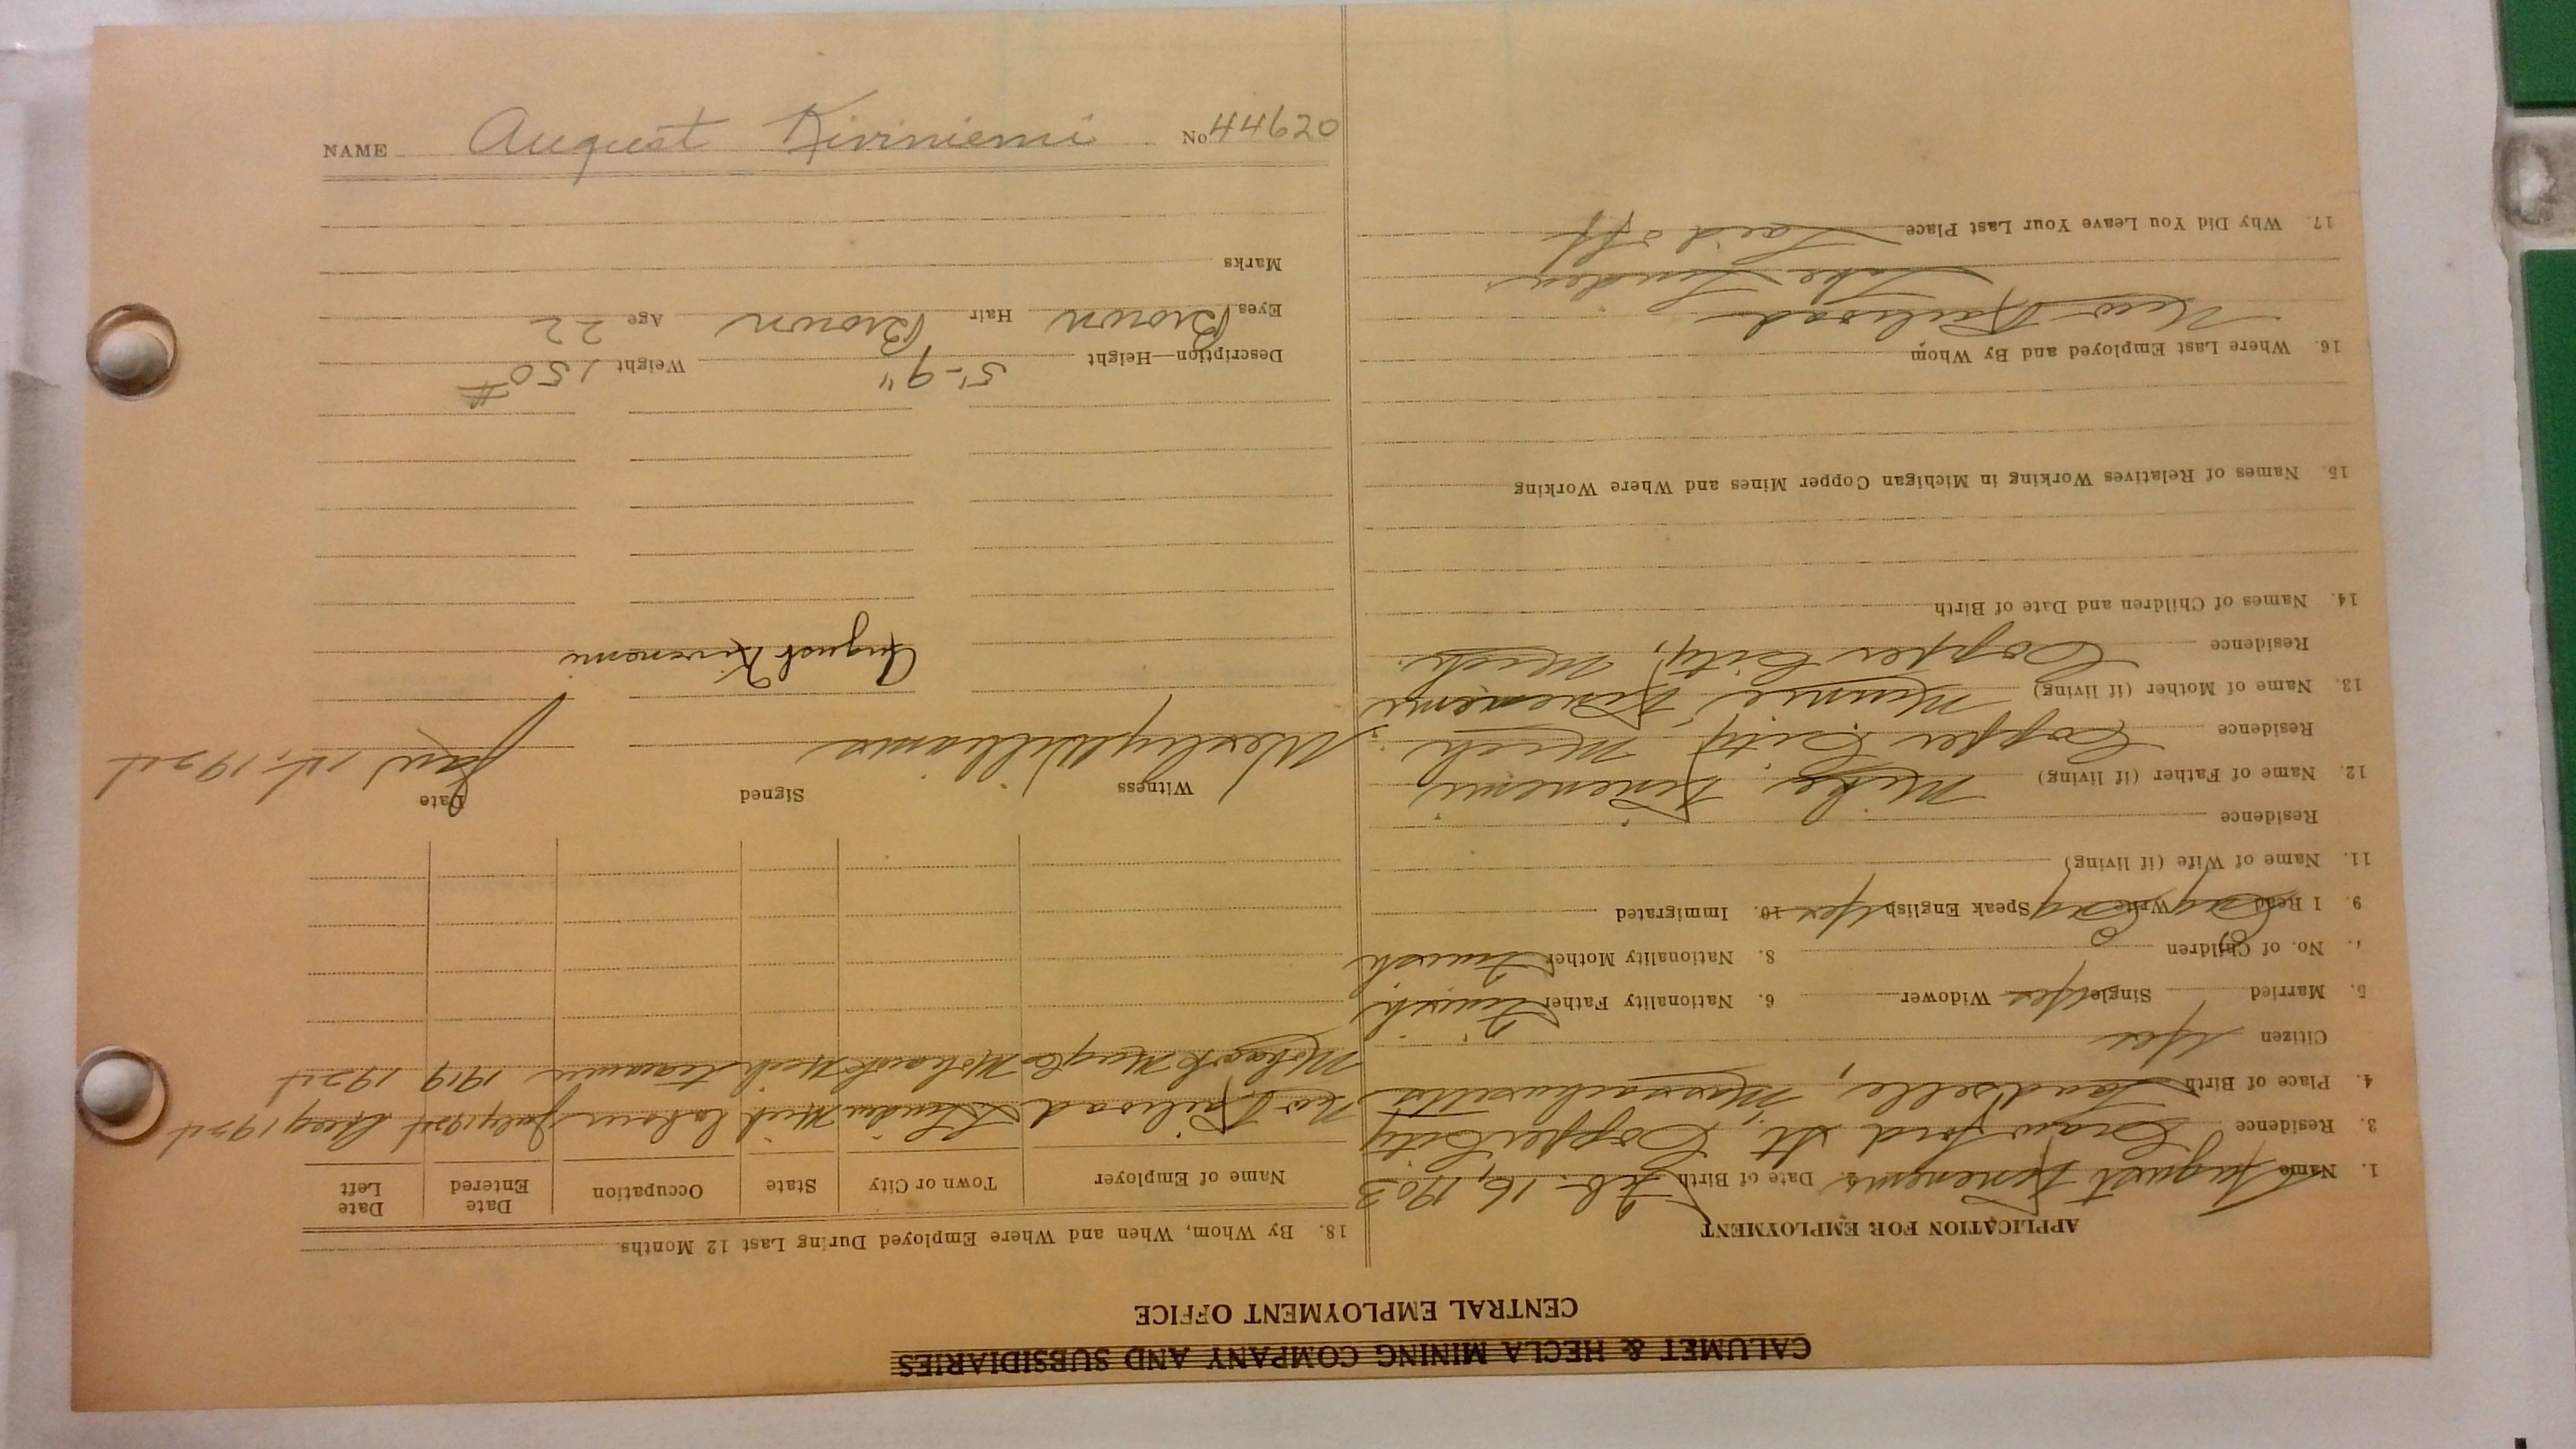 CALUMET & HECLA MINING COMPANY AND SUBSIDIARIES
CENTRAL EMPLOYMENT OFFICE
APPLICATION FOR EMPLOYMENT
1. Name August Kivenemi 2. Date of Birth Feb. 16, 1903
3. Residence Crawford St., Copper City
4. Place of Birth Massachusetts
Citizen Yes
5. Married Single Yes Widower 6. Nationality Father Finnish
7. No. of Children 0 8. Nationality Mother Finnish
9. I Read Write Speak English Yes 10. Immigrated
11. Name of Wife (if living)
Residence
12. Name of Father (if living) Mike Kivenemi
Residence Copper City, Mich.
13. Name of Mother (if living) Minnie Kivenemi
Residence Copper City, Mich.
14. Names of Children and Date of Birth
15. Names of Relatives Working in Michigan Copper Mines and Where Working
16. Where Last Employed and By Whom
New Railroad
Lake Linden
17. Why Did You Leave Your Last Place Laid off
18. By Whom, When and Where Employed During Last 12 Months
Name of Employer Town or City State Occupation Date Entered Date Left
New Railroad L. Linden Mich labour July 1924 Aug 1924
Mohawk Mng Co Mohawk Mich 1919 1924
Witness Signed Date
Williams
August Kivenemi
Description—Height 5'-9" Weight 150#
Eyes Brown Hair Brown Age 22
Marks
NAME August Kiviniemi No 44620